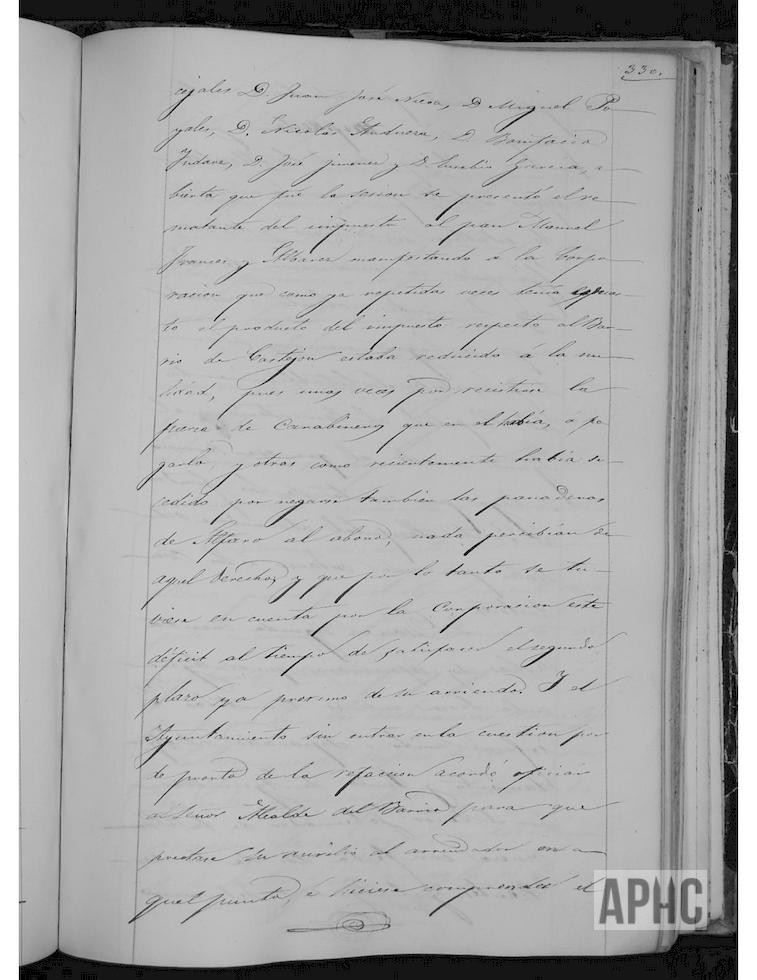 330.
cejales D. Juan José Nieva, D. Miguel Po-
yales, D. Nicolás Anduera, D. Bonifacio
Indave, D. José Jimenez y D. Eusebio Garcia, a-
bierta que fué la sesion se presentó el re-
matante del impuesto al pan Manuel
Frances y Albares manifestando á la Corpo-
racion que como ya repetidas veces tenia espues-
to el producto del impuesto respecto al Bar-
rio de Castejon estaba reducido á la nu-
lidad, pues unas veces por resistirse la
fuerza de Carabineros que en el había, á pa-
garlo, y otras como recientemente había su-
cedido por negarse tambien las panaderas
de Alfaro al abono, nada percibian de
aquel derecho, y que por lo tanto se tu-
viese en cuenta por la Corporacion este
déficit al tiempo de satisfacer el segundo
plazo ya proximo de su arriendo. Y el
Ayuntamiento sin entrar en la cuestion por
de pronto de la refaccion acordó oficiar
al Señor Alcalde del Barrio para que
prestase su auxilio al arrendador en a-
quel punto, é hiciese comprender el
APHC